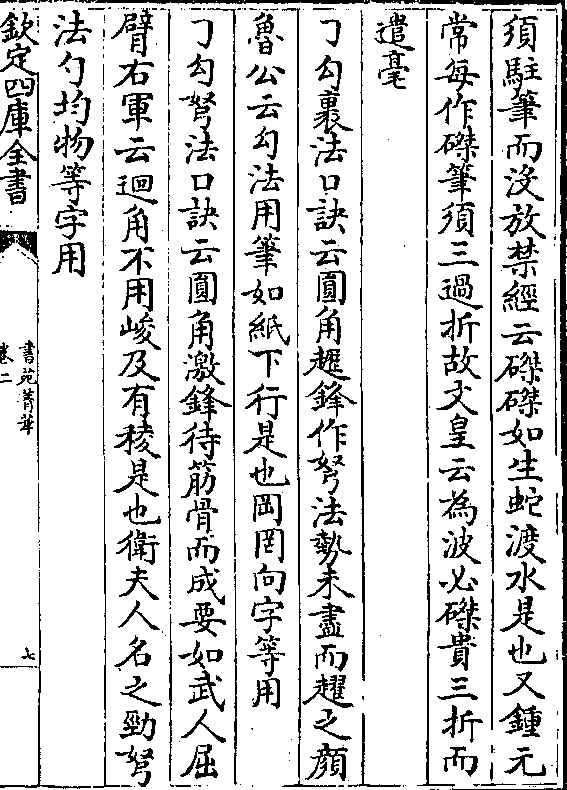 須駐筆而沒放禁經云磔磔如生蛇渡水是也又鍾元
常每作磔筆須三過折故文皇云為波必磔貴三折而
遣毫
㇆勾裏法口訣云圓角趯鋒作努法勢未盡而趯之顔
魯公云勾法用筆如紙下行是也岡罔向字等用
㇆勾努法口訣云圓角激鋒待筋骨而成要如武人屈
臂右軍云迴角不用峻及有稜是也衛夫人名之勁努
法勺均物等字用
欽定四庫全書
書苑菁華
卷二
七